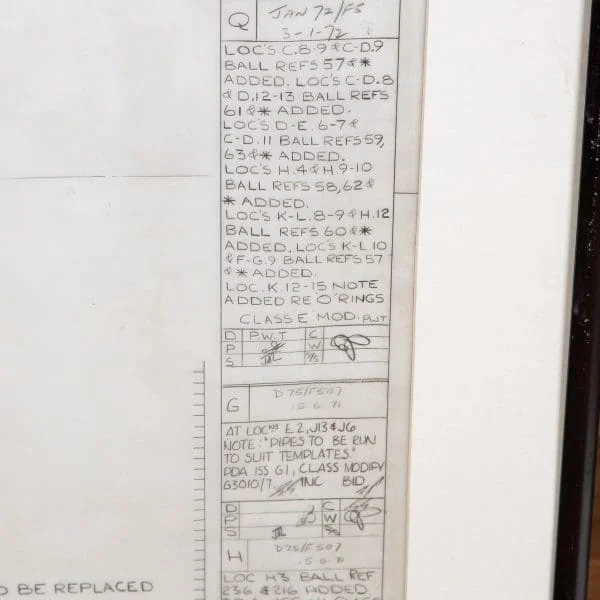 Q JAN 72/FS
3-1-72
LOC'S C.8-9 & C-D.9
BALL REFS 57 & *
ADDED. LOC'S C-D.8
& D.12-13 BALL REFS
61 & * ADDED.
LOC'S D-E.6-7 &
C-D.11 BALL REFS 59,
63 & * ADDED.
LOC'S H.4 & H.9-10
BALL REFS 58,62 &
* ADDED.
LOC'S K-L.8-9 & H.12
BALL REFS 60 & *
ADDED. LOC'S K-L 10
& F-G.9 BALL REFS 57
& * ADDED.
LOC. K.12-15 NOTE
ADDED RE 'O' RINGS
CLASS E MOD. PWT
D P.W.T C
P W
S
G D75/F507
15.6.71
AT LOCNS E2, J13 & J6
NOTE: "PIPES TO BE RUN
TO SUIT TEMPLATES."
PDA ISS G1, CLASS MODIFY
G3010/7. INC BID
D C
P W
S
H D75/F507
15.6.71
LOC H3 BALL REF
BE REPLACED
236 & 216 ADDED